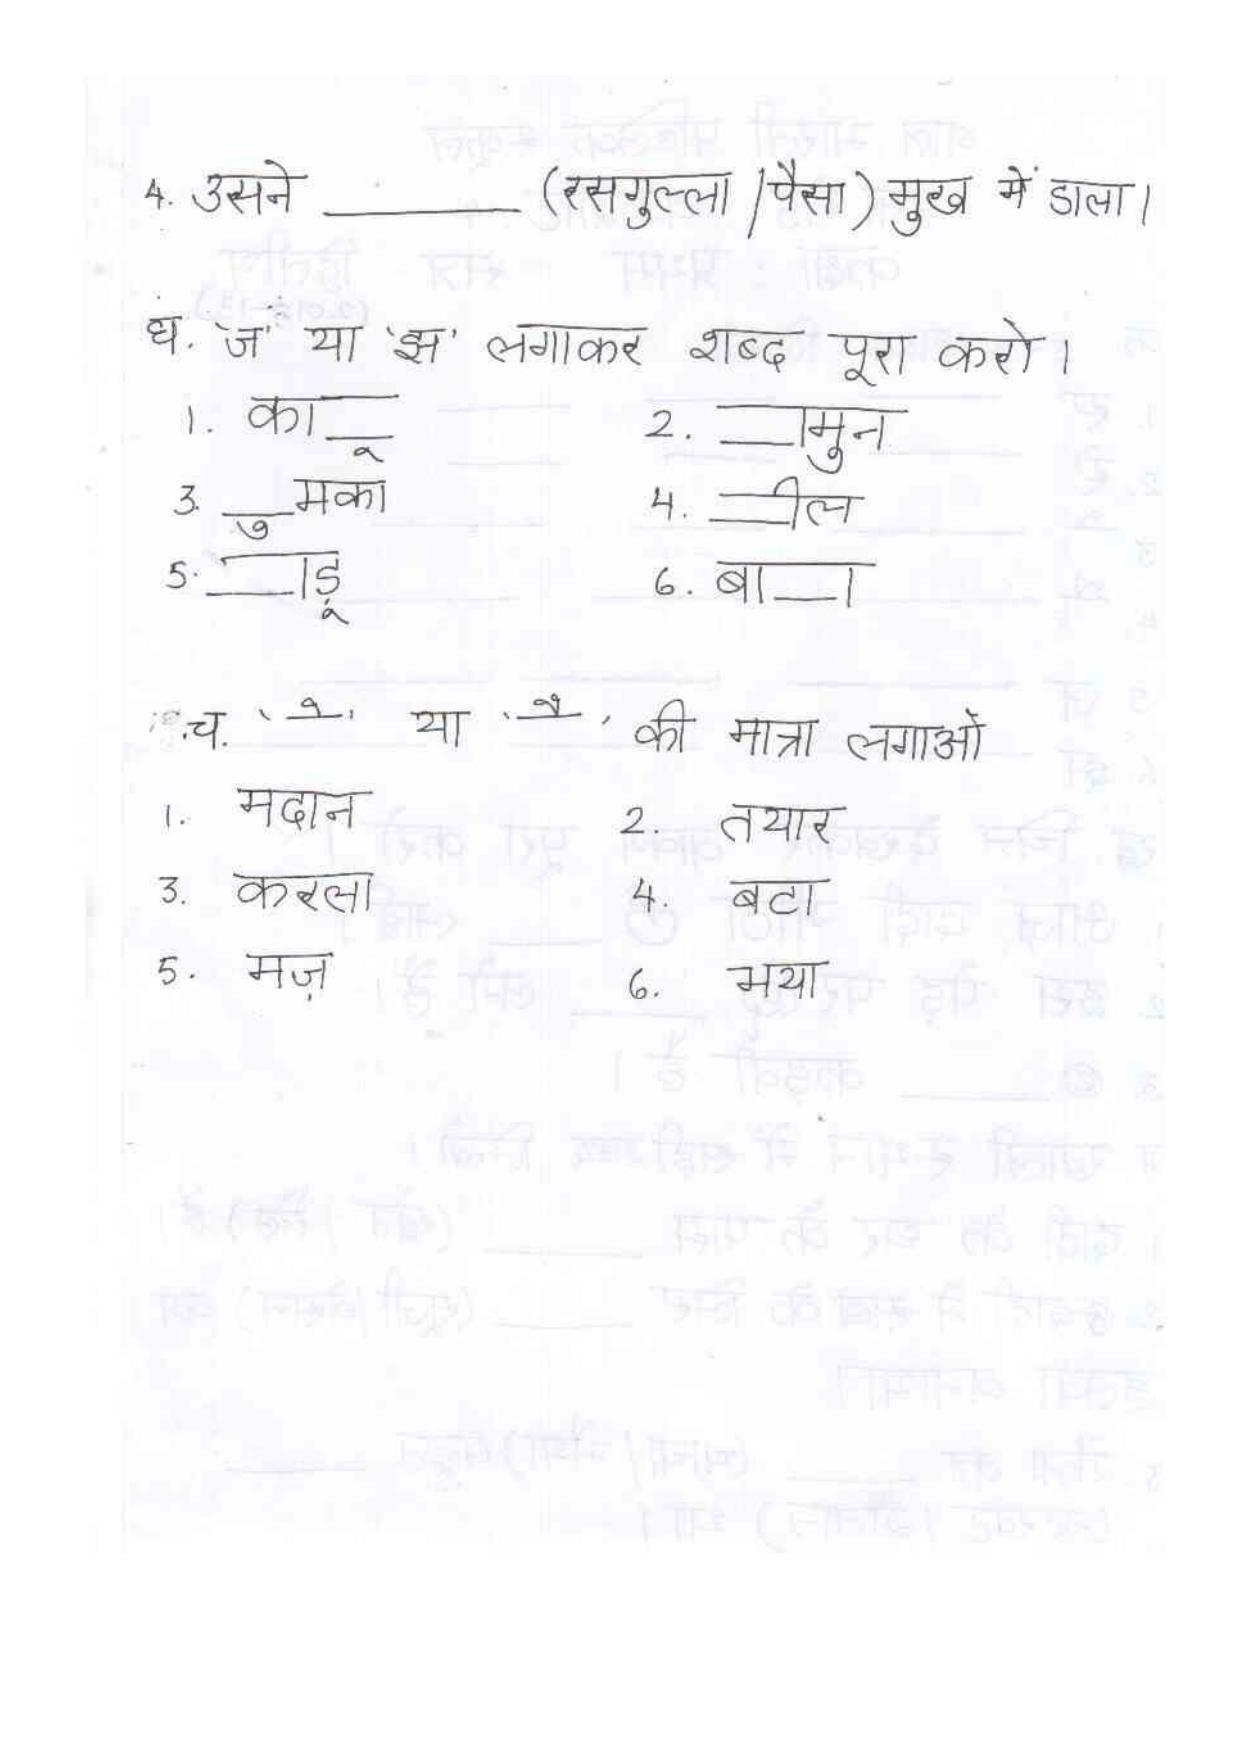 4. उसने ________ (रसगुल्ला / पैसा) मुख में डाला।
घ. 'ज' या 'झ' लगाकर शब्द पूरा करो।
1. का__ू 2. ___ामुन
3. __ुमका 4. ___ील
5. ___ाड़ू 6. बा___ा
च. ' े ' या ' ै ' की मात्रा लगाओ
1. मदान 2. तयार
3. करला 4. बटा
5. मज़ 6. भया